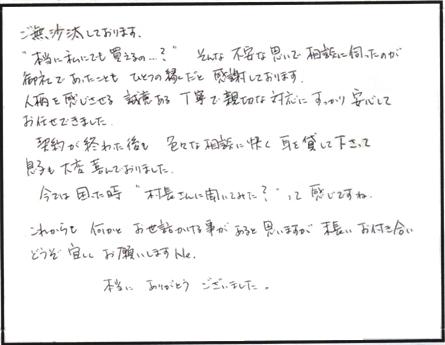 ご無沙汰しております。
"本当に私にでも買えるの…?" そんな不安な思いで相談に伺ったのが
御社であったことも ひとつの縁だと感謝しております。
人柄を感じさせる 誠意ある 丁寧で親切な対応に すっかり安心して
お任せできました。
契約が終わった後も 色々な相談に快く耳を貸して下さって
息子も大変喜んでおりました。
今では困った時 "村長さんに聞いてみた?" って感じですね。
これからも 何かとお世話かける事があると思いますが 末長いお付き合い
どうぞ宜しくお願いしますNe.
本当に ありがとう ございました。